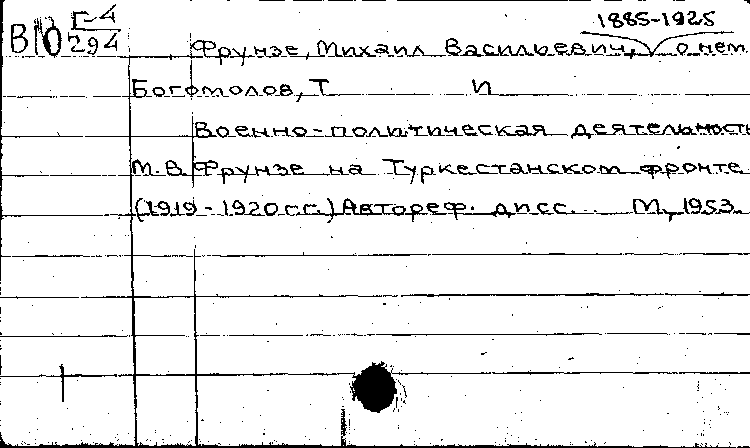 Г-4
1885-1925
294
Фрунзе, Михаил Васильевич, о нем
Богомолов, Т И
Военно-политическая деятельность
М.В. Фрунзе на Туркестанском фронте
(1919-1920 гг.) Автореф. дисс. М, 1953.